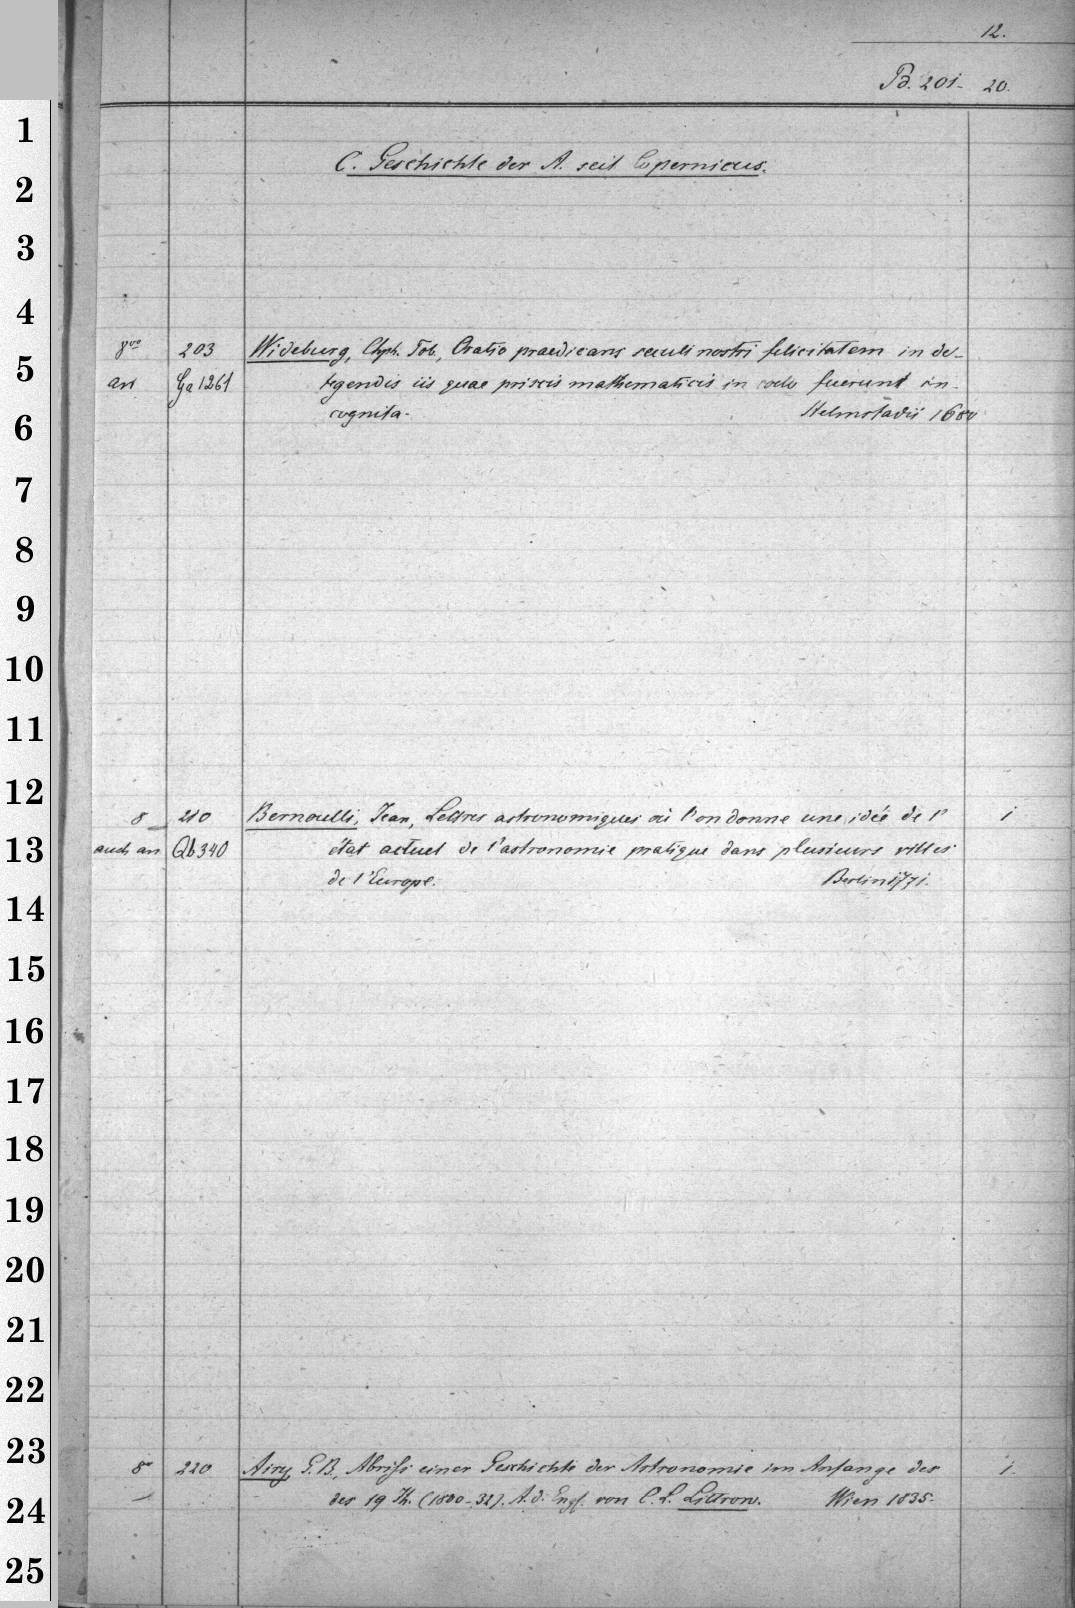 12.
B. 201- 20.
C. Geschichte der A. seit Copernicus.
8vo 203 Wideburg, Chph. Tob., Oratio praedicans seculi nostri felicitatem in de-
an Ga 1261 tegendis iis quae priscis mathematicis in coelo fuerunt in-
cognita. Helmstadii 1680
8 210 Bernoulli, Jean, Lettres astronomiques où l'on donne une idée de l' 1
auch an Qb 340 état actuel de l'astronomie pratique dans plusieurs villes
de l'Europe. Berlin 1771.
8o 220 Airy, G. B., Abriss einer Geschichte der Astronomie im Anfange des 1.
des 19 Jh. (1800-32). A. d. Engl. von C. L. Littrow. Wien 1835.
1
2
3
4
5
6
7
8
9
10
11
12
13
14
15
16
17
18
19
20
21
22
23
24
25